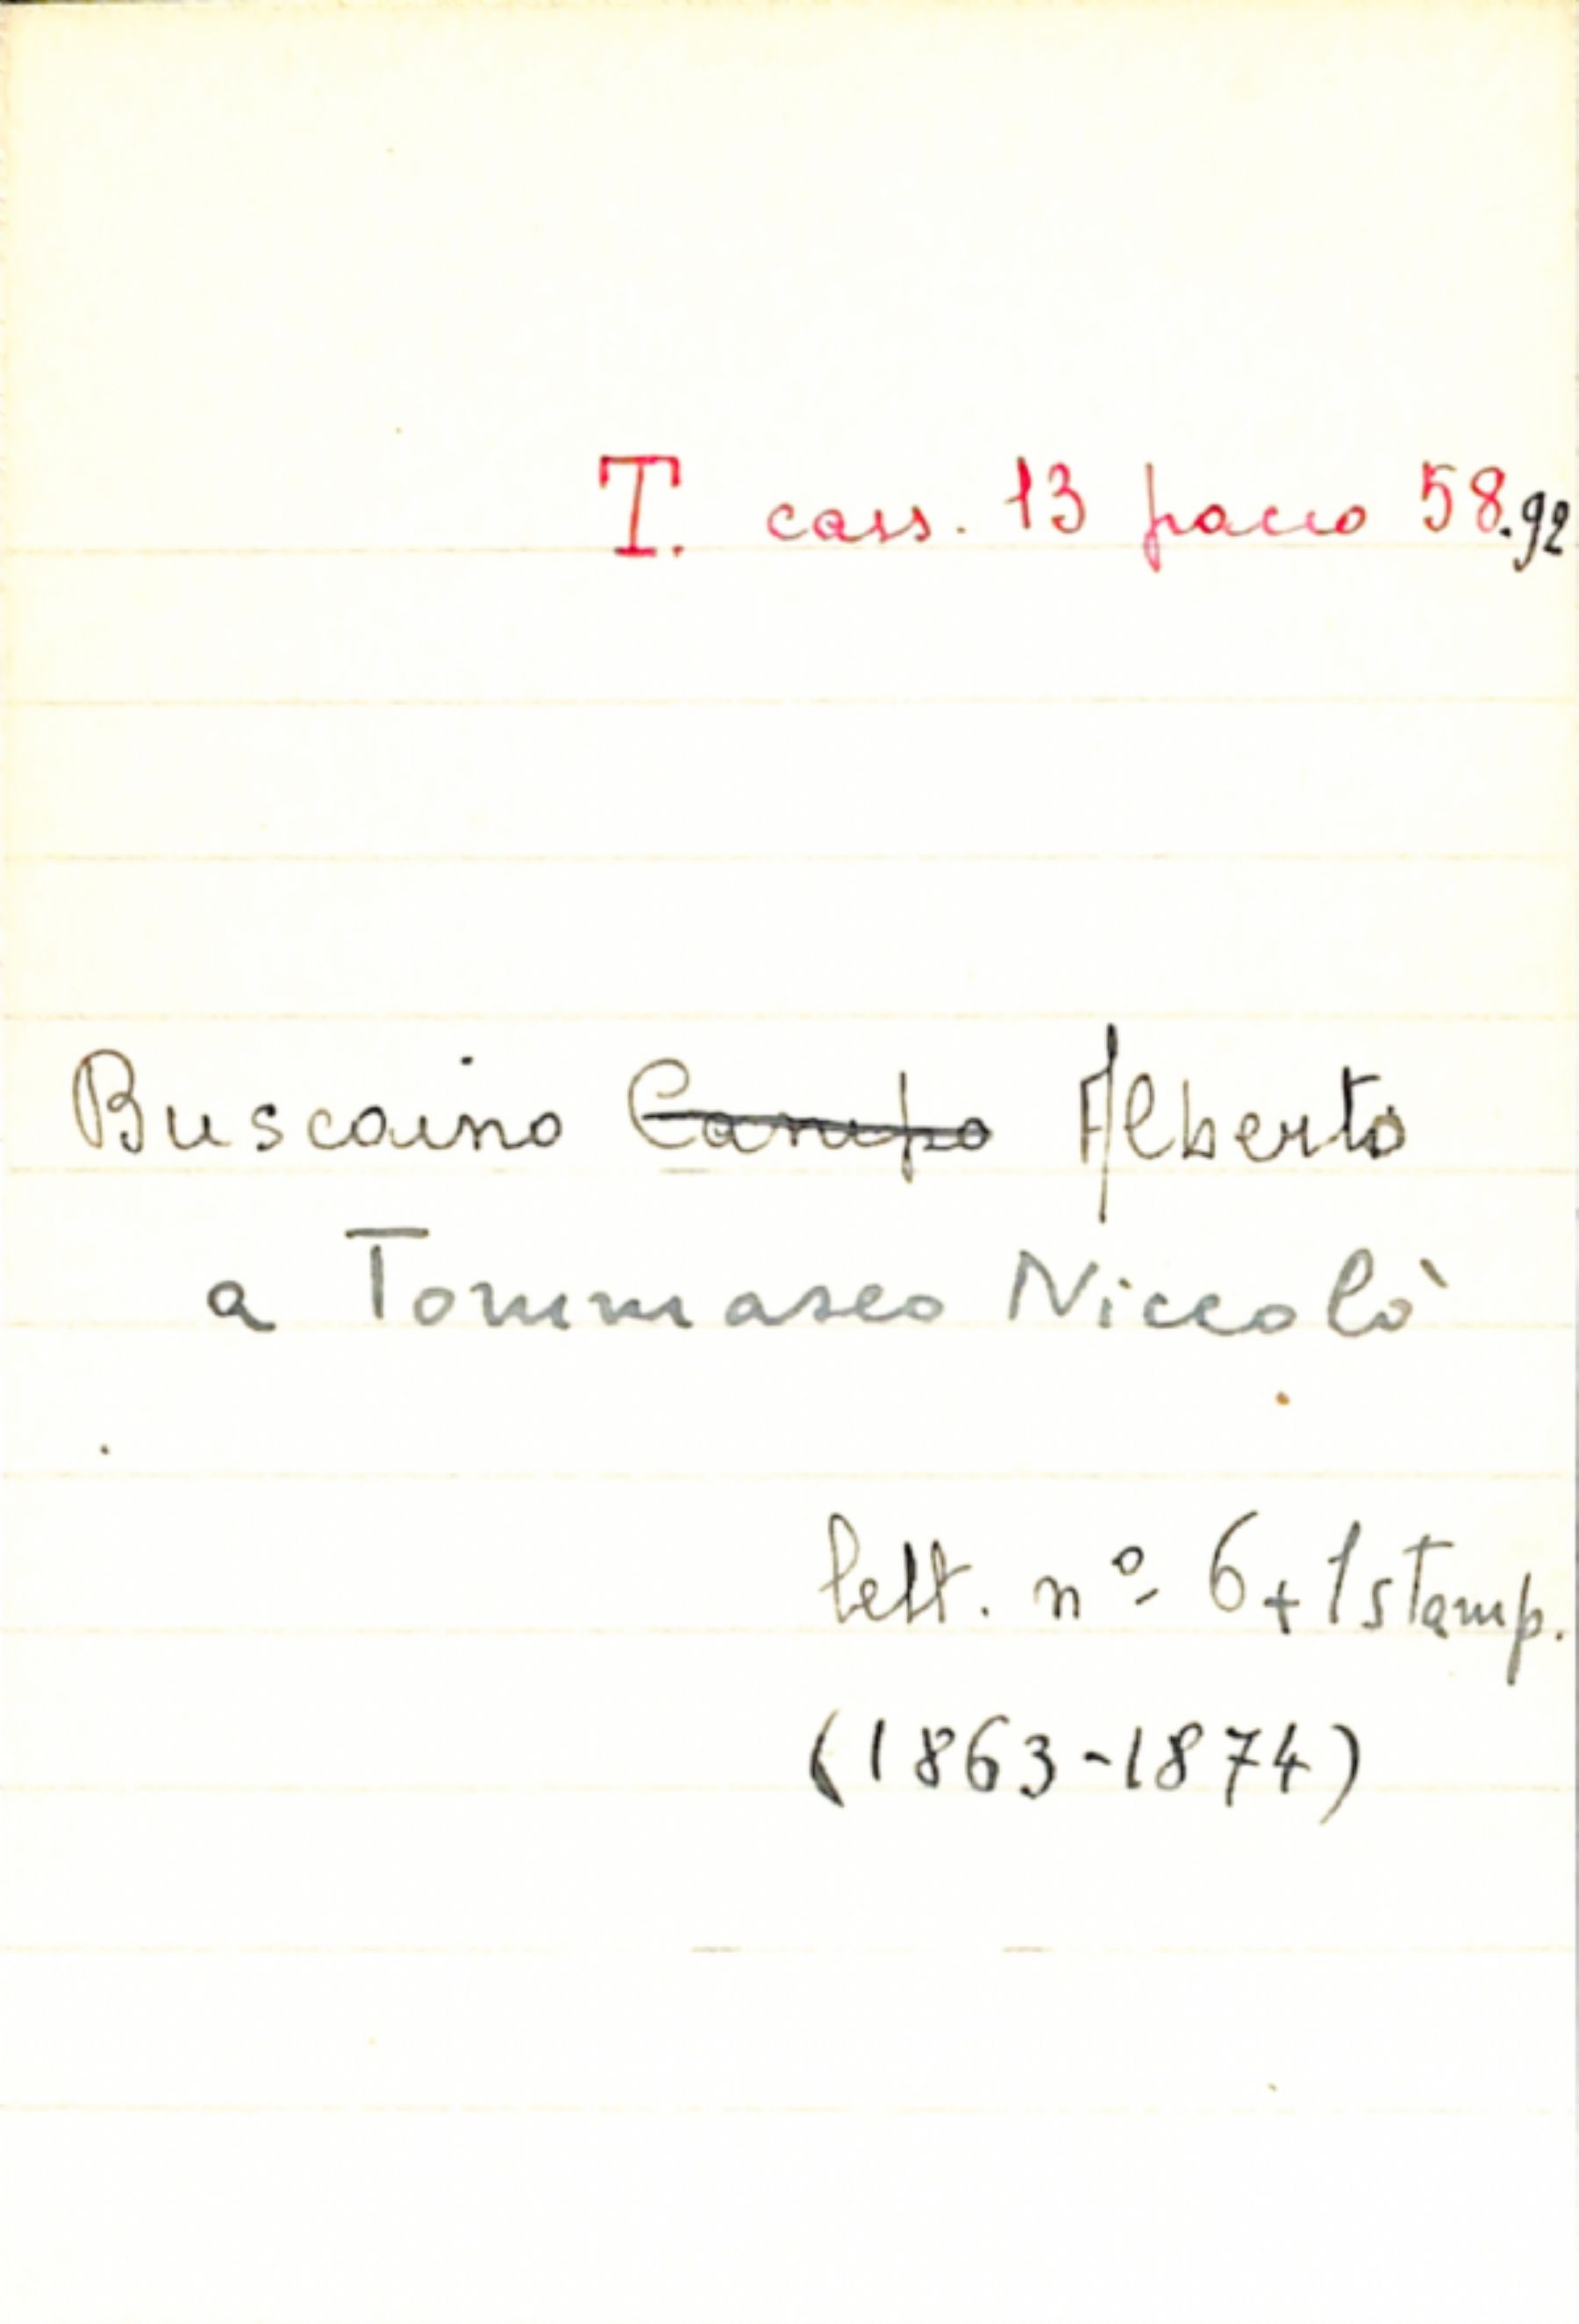 T. cass. 13 pacco 58.92
Buscaino Campo Alberto
a Tommaseo Niccolò
lett. nº 6 + 1 stamp.
(1863-1874)